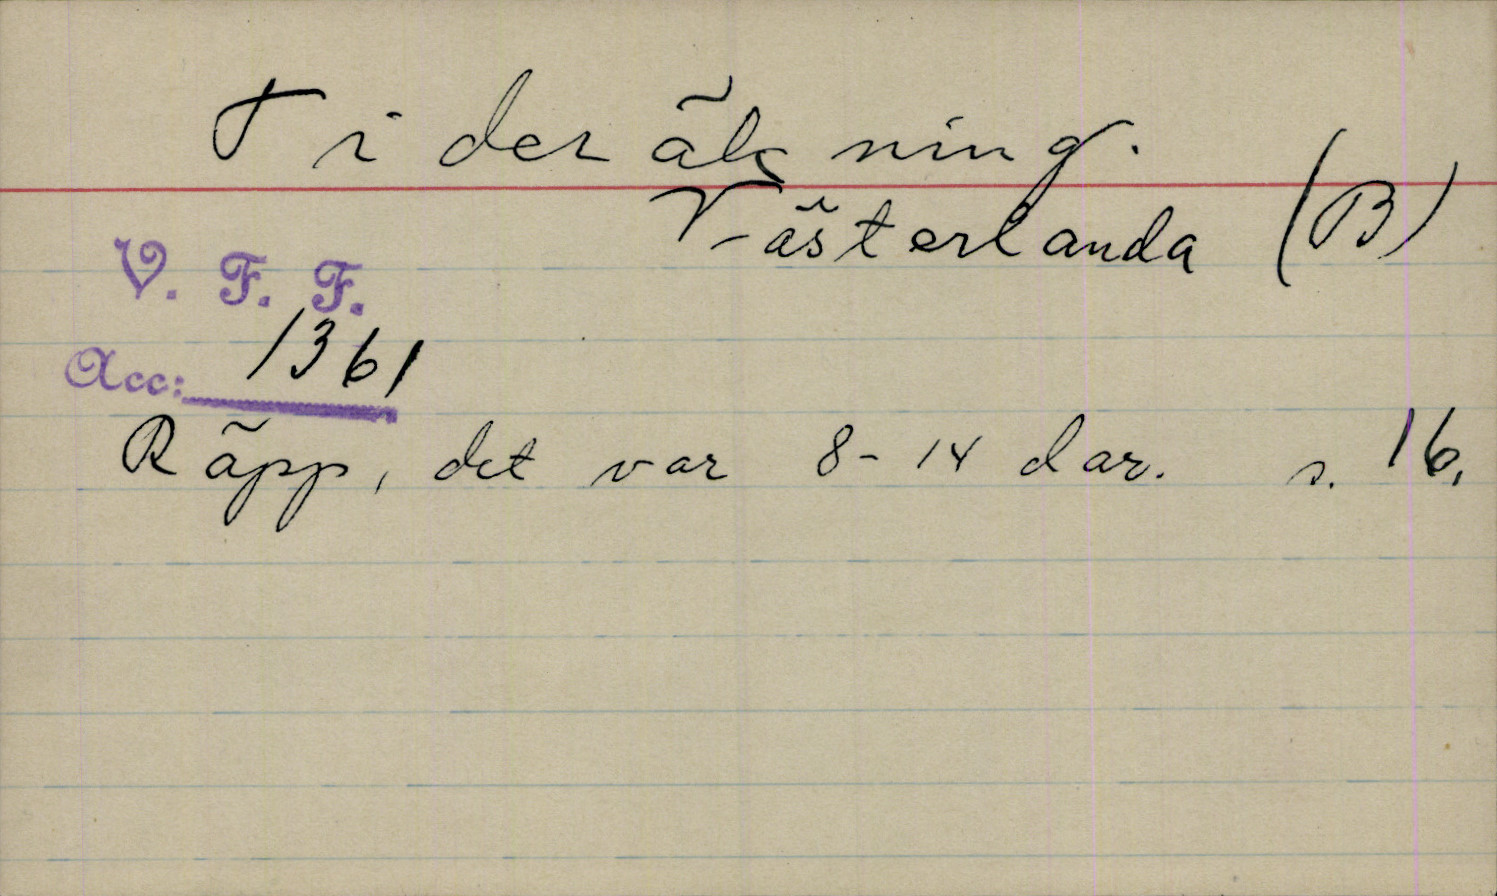 Tideräkning.
Västerlanda (B)
V. F. F.
Acc: 1361
Räpp, det var 8-14 dar. s. 16.